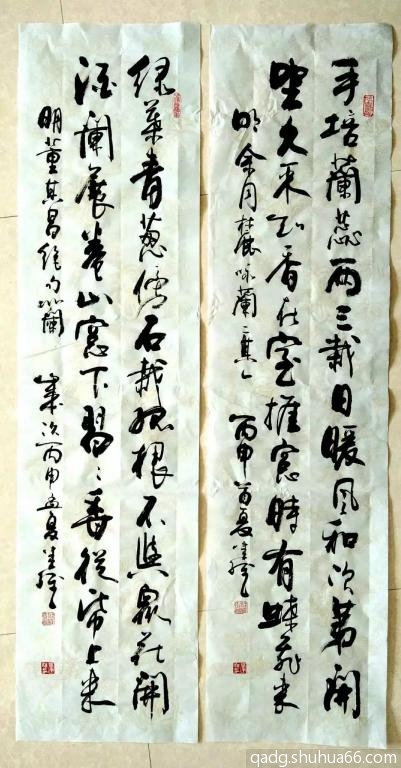 手培蘭蕊兩三栽日暖風和次第開
坐久不知香在室推窓時有蝶飛来
明余同麓咏蘭二其一 丙申首夏
绿葉青葱傍石栽孤根不與衆花開
酒闌展卷山窓下習々香從紙上来
明董其昌绝句蘭 歲次丙申孟夏
qadg.shuhua66.com